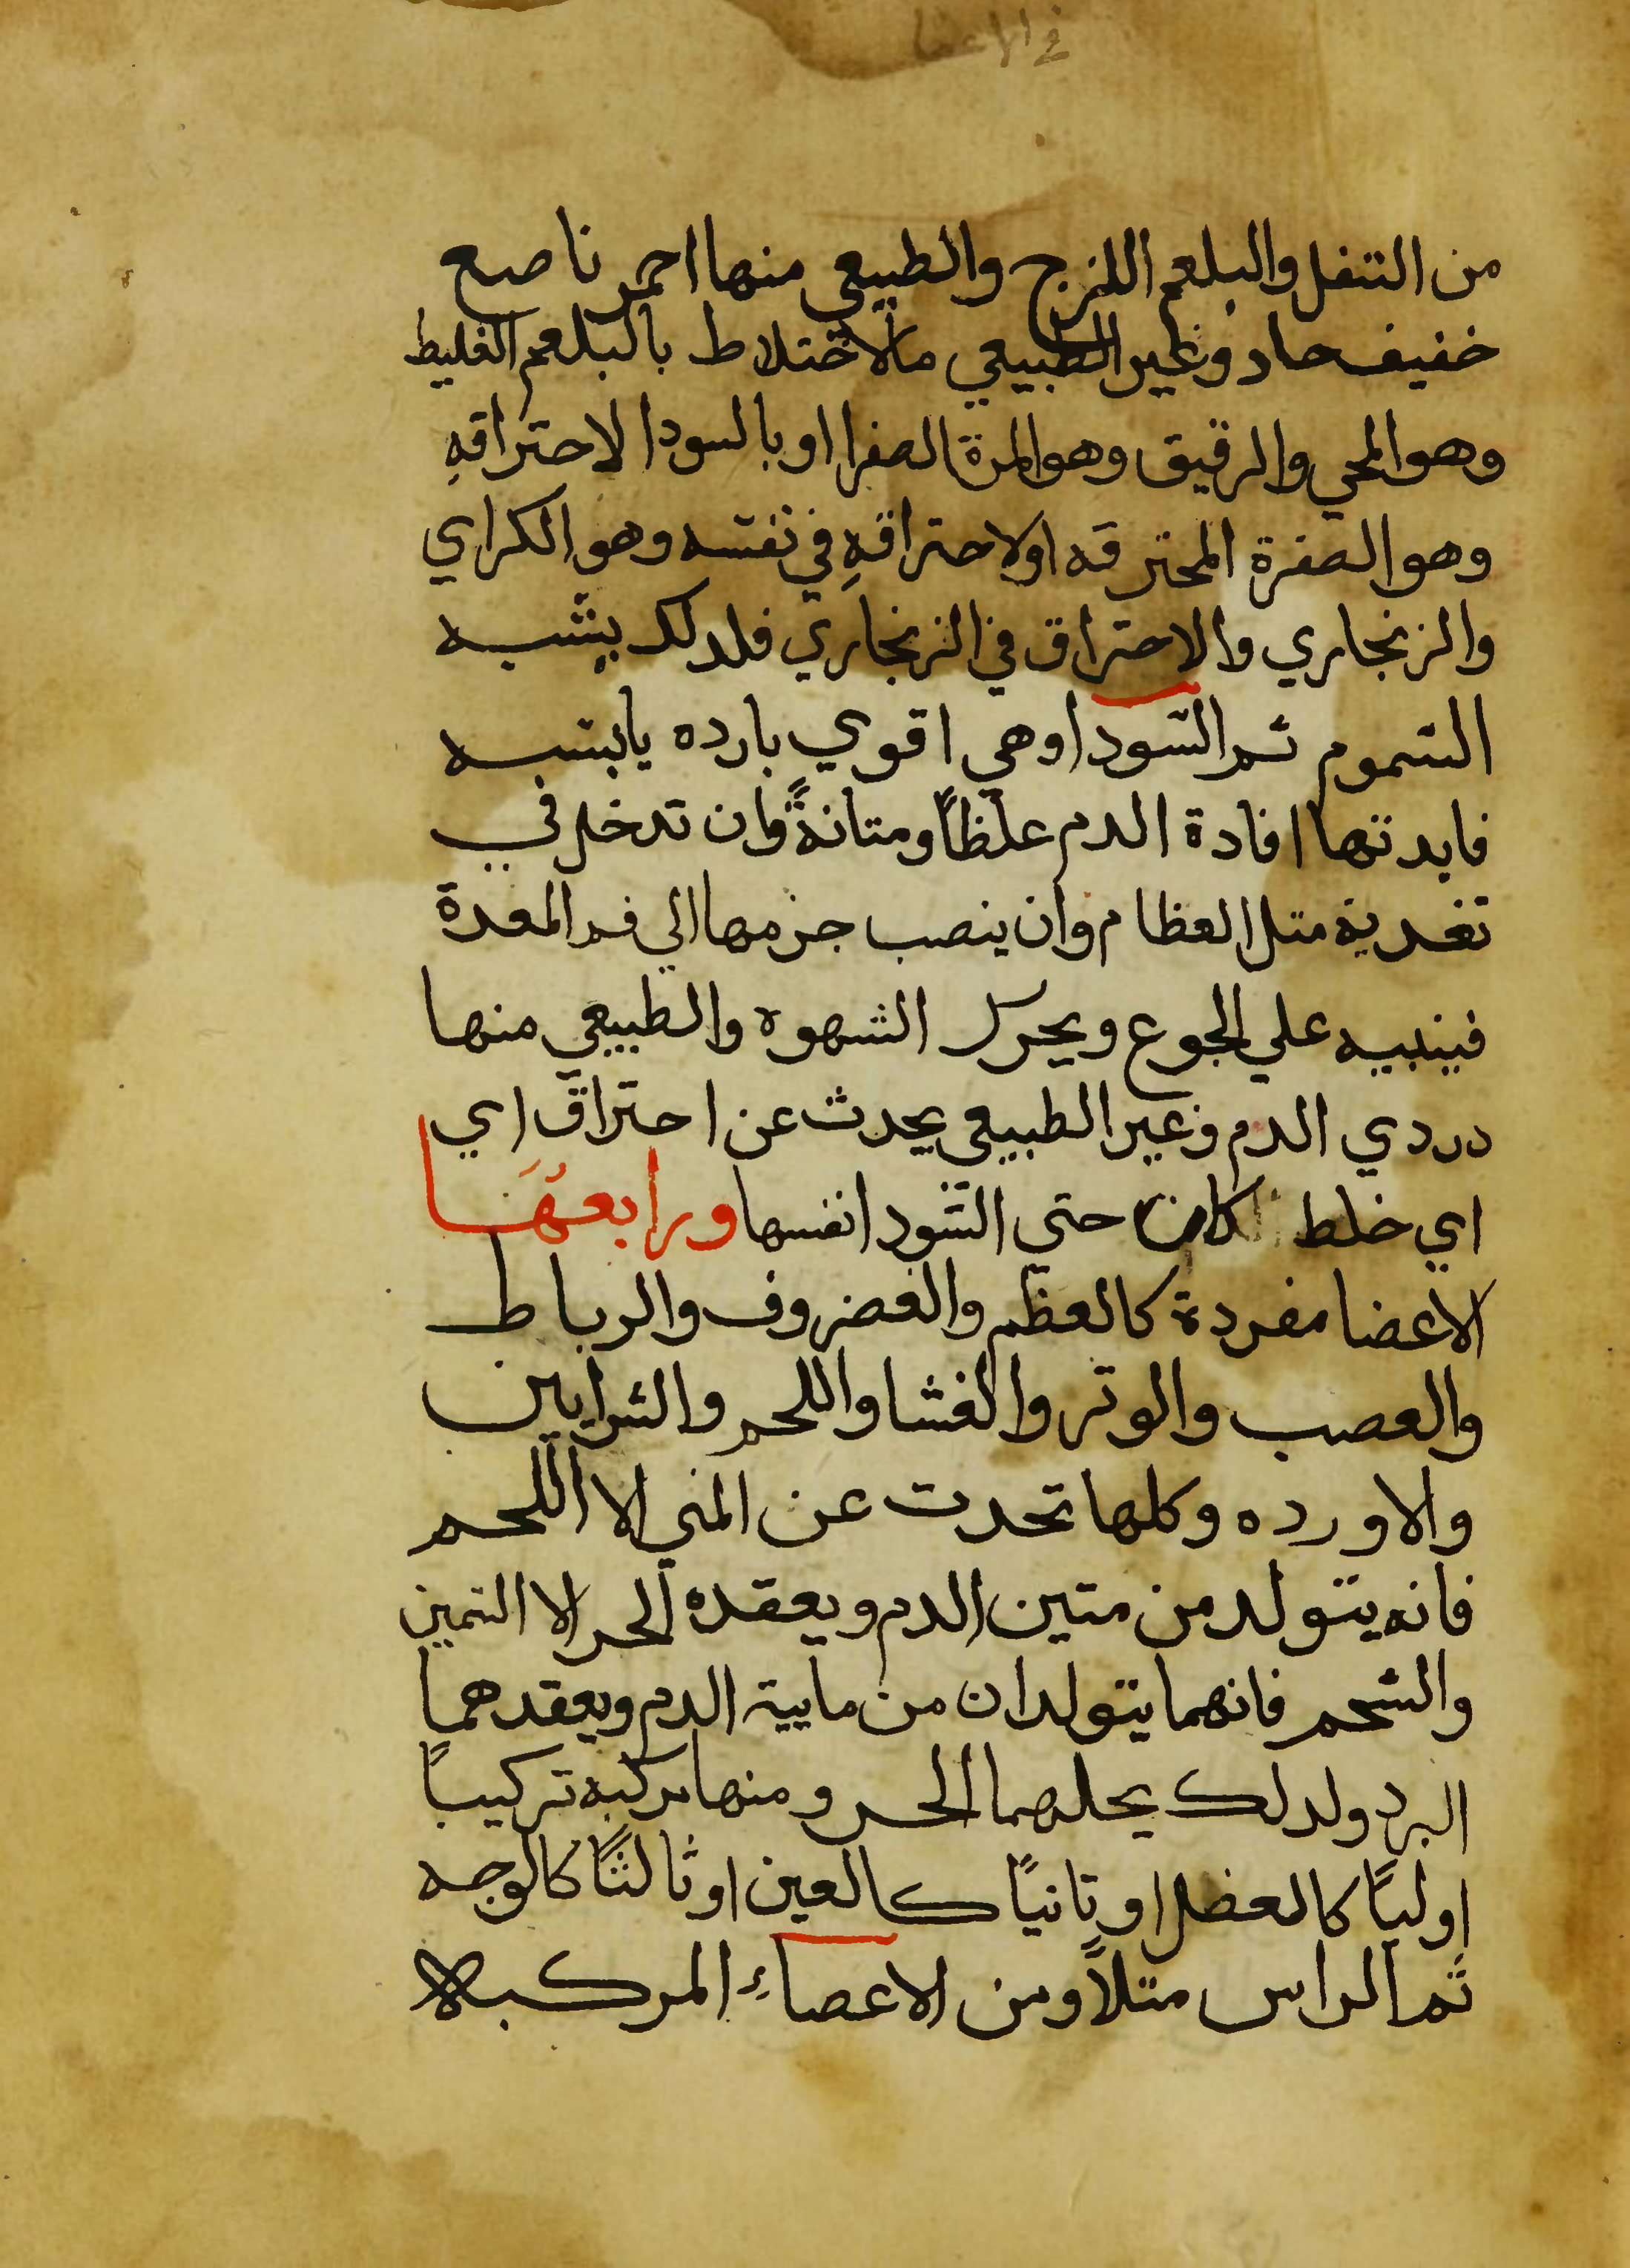 في الاعضا
من التتفل والبلغم اللزج والطبيعي منها احمر ناصع
خفيف حاد وغير الطبيعي ما لاختلاط بالبلغم الغليط
وهو المحي والرقيق وهو المرة الصفرا او بالسودا لاحتراقهِ
وهو الصفرة المحترقه او لاحتراقهِ في نفسه وهو الكراي
والزنجاري والاحتراق في الزنجاري فلدلك يشبه
السموم ثم السودا وهي اقوي بارده يابسه
فايدتها افادة الدم غلظاً ومتانةً وان تدخل في
تغدية متل العظام وان ينصب جزمها الي فم المعدة
فينبيه علي الجوع ويحرك الشهوه والطبيعي منها
دردي الدم وغير الطبيعي يحدث عن احتراق اي
اي خلط كان حتي السودا نفسها ورابعها
الاعضا مفردة كالعظم والغضروف والرباط
والعصب والوتر والغشا واللحم والشرايين
والاورده وكلها تحدت عن المني الا اللحم
فانه يتولد من متين الدم ويعقده الحر الا السمين
والشحم فانهما يتولدان من مايية الدم ويعقدهما
البرد ولدلك يحلهما الحر ومنها مركبة تركيباً
اولياً كالعضل او تانياً كالعين او ثالثاً كالوجه
ثم الراس متلاً ومن الاعصاء المركبه